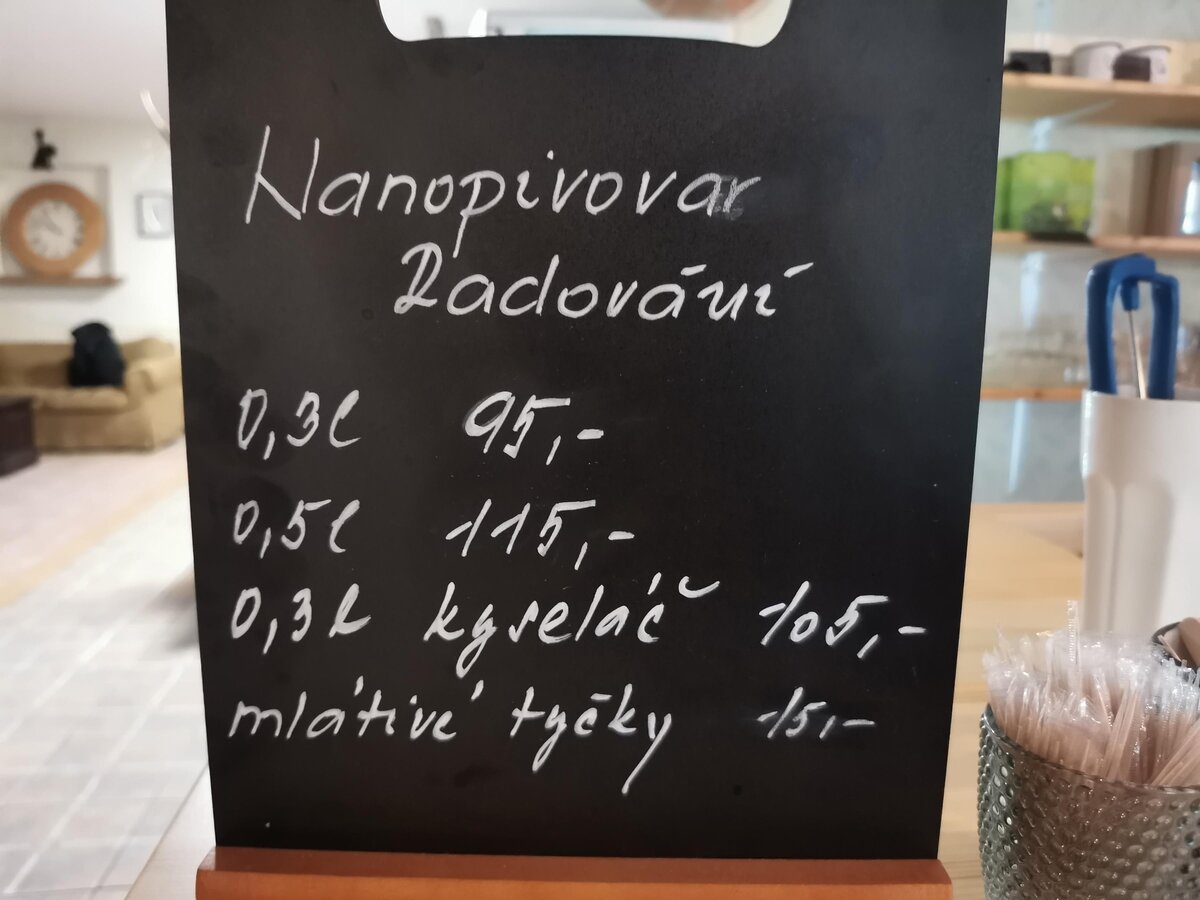 Nanopivovar
Radování
0,3l 95,-
0,5l 115,-
0,3l kyseláč 105,-
mlátivé tyčky 15,-